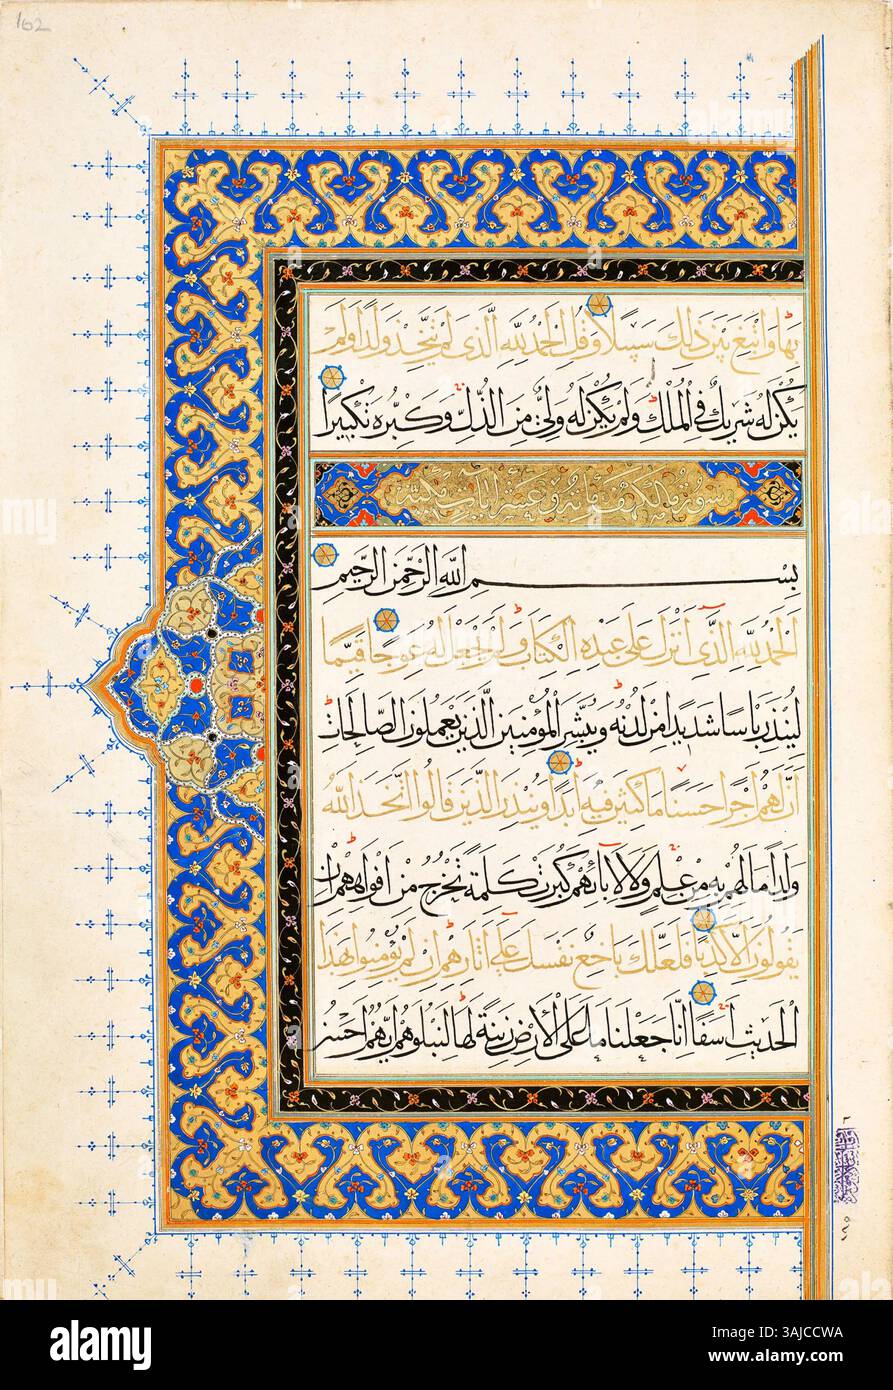 162
بِهَا وَابْتَغِ بَيْنَ ذَلِكَ سَبِيلًا وَقُلِ الْحَمْدُ لِلَّهِ الَّذِي لَمْ يَتَّخِذْ وَلَدًا وَلَمْ
يَكُنْ لَهُ شَرِيكٌ فِي الْمُلْكِ وَلَمْ يَكُنْ لَهُ وَلِيٌّ مِنَ الذُّلِّ وَكَبِّرْهُ تَكْبِيرًا
سورة الكهف مائة وعشر ايات مكية
بِسْمِ اللَّهِ الرَّحْمَنِ الرَّحِيمِ
الْحَمْدُ لِلَّهِ الَّذِي أَنْزَلَ عَلَى عَبْدِهِ الْكِتَابَ وَلَمْ يَجْعَلْ لَهُ عِوَجًا قَيِّمًا
لِيُنْذِرَ بَأْسًا شَدِيدًا مِنْ لَدُنْهُ وَيُبَشِّرَ الْمُؤْمِنِينَ الَّذِينَ يَعْمَلُونَ الصَّالِحَاتِ
أَنَّ لَهُمْ أَجْرًا حَسَنًا مَاكِثِينَ فِيهِ أَبَدًا وَيُنْذِرَ الَّذِينَ قَالُوا اتَّخَذَ اللَّهُ
وَلَدًا مَا لَهُمْ بِهِ مِنْ عِلْمٍ وَلَا لِآبَائِهِمْ كَبُرَتْ كَلِمَةً تَخْرُجُ مِنْ أَفْوَاهِهِمْ إِنْ
يَقُولُونَ إِلَّا كَذِبًا فَلَعَلَّكَ بَاخِعٌ نَفْسَكَ عَلَى آثَارِهِمْ إِنْ لَمْ يُؤْمِنُوا بِهَذَا
الْحَدِيثِ أَسَفًا إِنَّا جَعَلْنَا مَا عَلَى الْأَرْضِ زِينَةً لَهَا لِنَبْلُوَهُمْ أَيُّهُمْ أَحْسَنُ
alamy
Image ID: 3AJCCWA
www.alamy.com